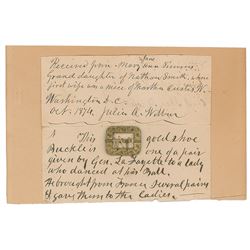 Jane
Received from Mary Ann Simms
Grand daughter of Nathan Smith, whose
first wife was a niece of Martha Custis W.
Washington D.C.
Oct. 1874. Julia A. Wilbur
This gold shoe
Buckle is one of a pair
given by Gen. La Fayette to a lady
who danced at his Ball.
He brought from France several pairs
& gave them to the Ladies